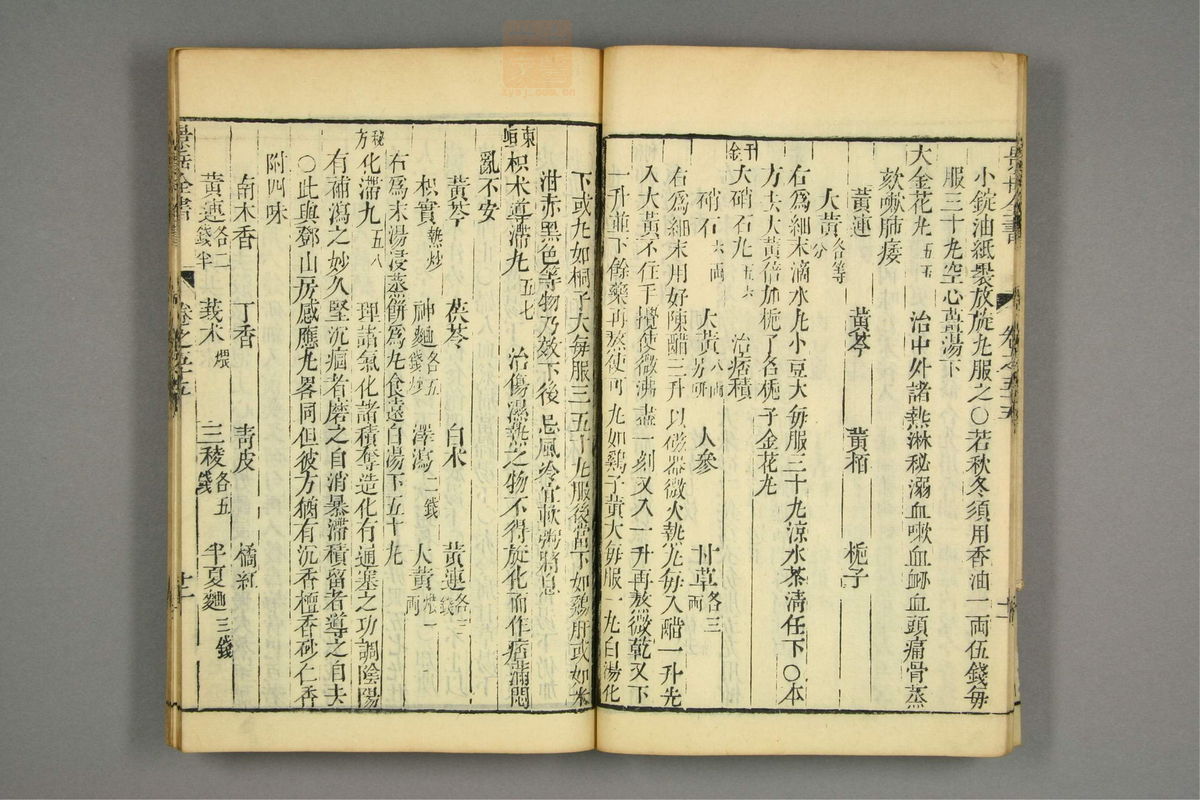 小錠油紙褁放旋丸服之○若秋冬須用香油一兩伍錢每
服三十丸空心薑湯下
大金花丸 五五 治中外諸熱淋秘溺血嗽血衂血頭痛骨蒸
欬嗽肺痿
黃連 黃芩 黃栢 梔子
大黃各等分
右爲細末滴水丸小豆大每服三十丸凉水茶淸任下○本
方去大黃倍加梔子名梔子金花丸
干金 大硝石丸 五六 治痞積
硝石六兩 大黃八兩 人參 甘草各三兩
右爲細末用好陳醋三升以磁器微火熬先每入醋一升先
入大黃不住手攪使微沸盡一刻又入一升再熬微乾又下
一升並下餘藥再熬使可丸如鷄子黃大每服一丸白湯化
下或丸如桐子大每服三五十丸服後當下如鷄肝或如米
泔赤黑色等物乃效下後忌風冷宜軟粥將息
東垣 枳术導滯丸 五七 治傷濕熱之物不得旋化而作痞滿悶
亂不安
黃芩 茯苓 白术 黃連各三錢
枳實麩炒 神麯各五錢炒 澤瀉二錢 大黃煨一兩
右爲末湯浸蒸餠爲丸食遠白湯下五十丸
秘方 化滯丸 五八 理諸氣化諸積奪造化有通塞之功調陰陽
有補瀉之妙久堅沉痼者磨之自消暴滯積留者導之自去
○此與鄧山房感應丸畧同但彼方猶有沉香檀香砂仁香
附四味
南木香 丁香 靑皮 橘紅
黃連各二錢半 莪术煨 三稜各五錢 半夏麯三錢
景岳全書 卷之五十五 十二